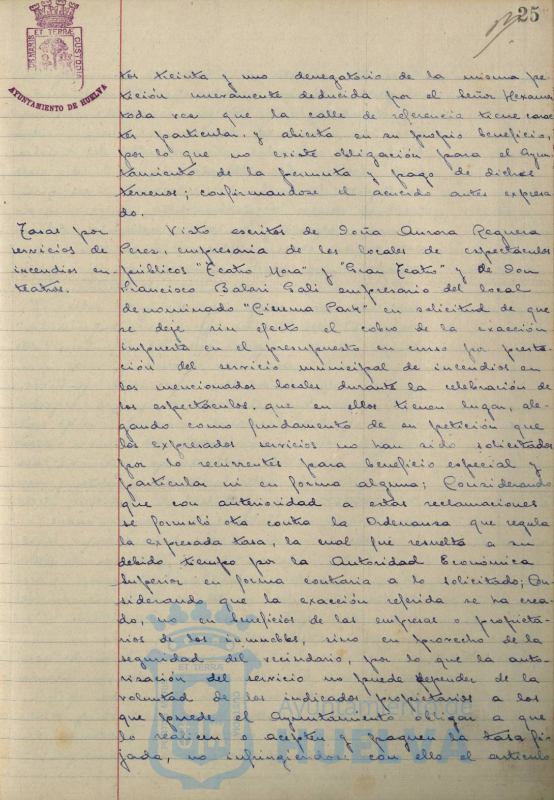 25
PORTUS MARIS ET TERRÆ CUSTODIA
AYUNTAMIENTO DE HUELVA
tos treinta y uno denegatorio de la misma pe-
tición nuevamente deducida por el Señor
toda vez que la calle de referencia tiene carac-
ter particular, y abierta en su propio beneficio,
por lo que no existe obligación para el Ayun-
tamiento de la permuta y pago de dichos
terrenos; confirmandose el acuerdo antes expresa
do.
Tasas por
servicios de
incendios en
teatros.
Visto escritos de Doña Aurora Reguera
Perez, empresaria de los locales de espectáculos
públicos "Teatro Mora" y "Gran Teatro" y de Don
Francisco Balari Galí empresario del local
denominado "Cinema Park" en solicitud de que
se deje sin efecto el cobro de la exacción
impuesta en el presupuesto en curso por presta-
ción del servicio municipal de incendios en
los mencionados locales durante la celebración de
los espectáculos, que en ellos tienen lugar, ale-
gando como fundamento de su petición que
los expresados servicios no han sido solicitados
por lo recurrentes para beneficio especial y
particular ni en forma alguna; Considerando
que con anterioridad a estas reclamaciones
se formuló otra contra la Ordenanza que regula
la expresada tasa, la cual fué resuelta a su
debido tiempo por la Autoridad Económica
Superior en forma contraria a lo solicitado; Con-
siderando que la exacción referida se ha crea-
do, no en beneficios de las empresas o propieta-
rios de los inmuebles, sino en provecho de la
seguridad del vecindario, por lo que la auto-
rización del servicio no puede depender de la
voluntad de los indicados propietarios a los
que puede el Ayuntamiento obligar a que
lo realicen o acepten y paguen la tasa fi-
jada, no infringiendose con ello el articulo
Ayuntamiento de
HUELVA